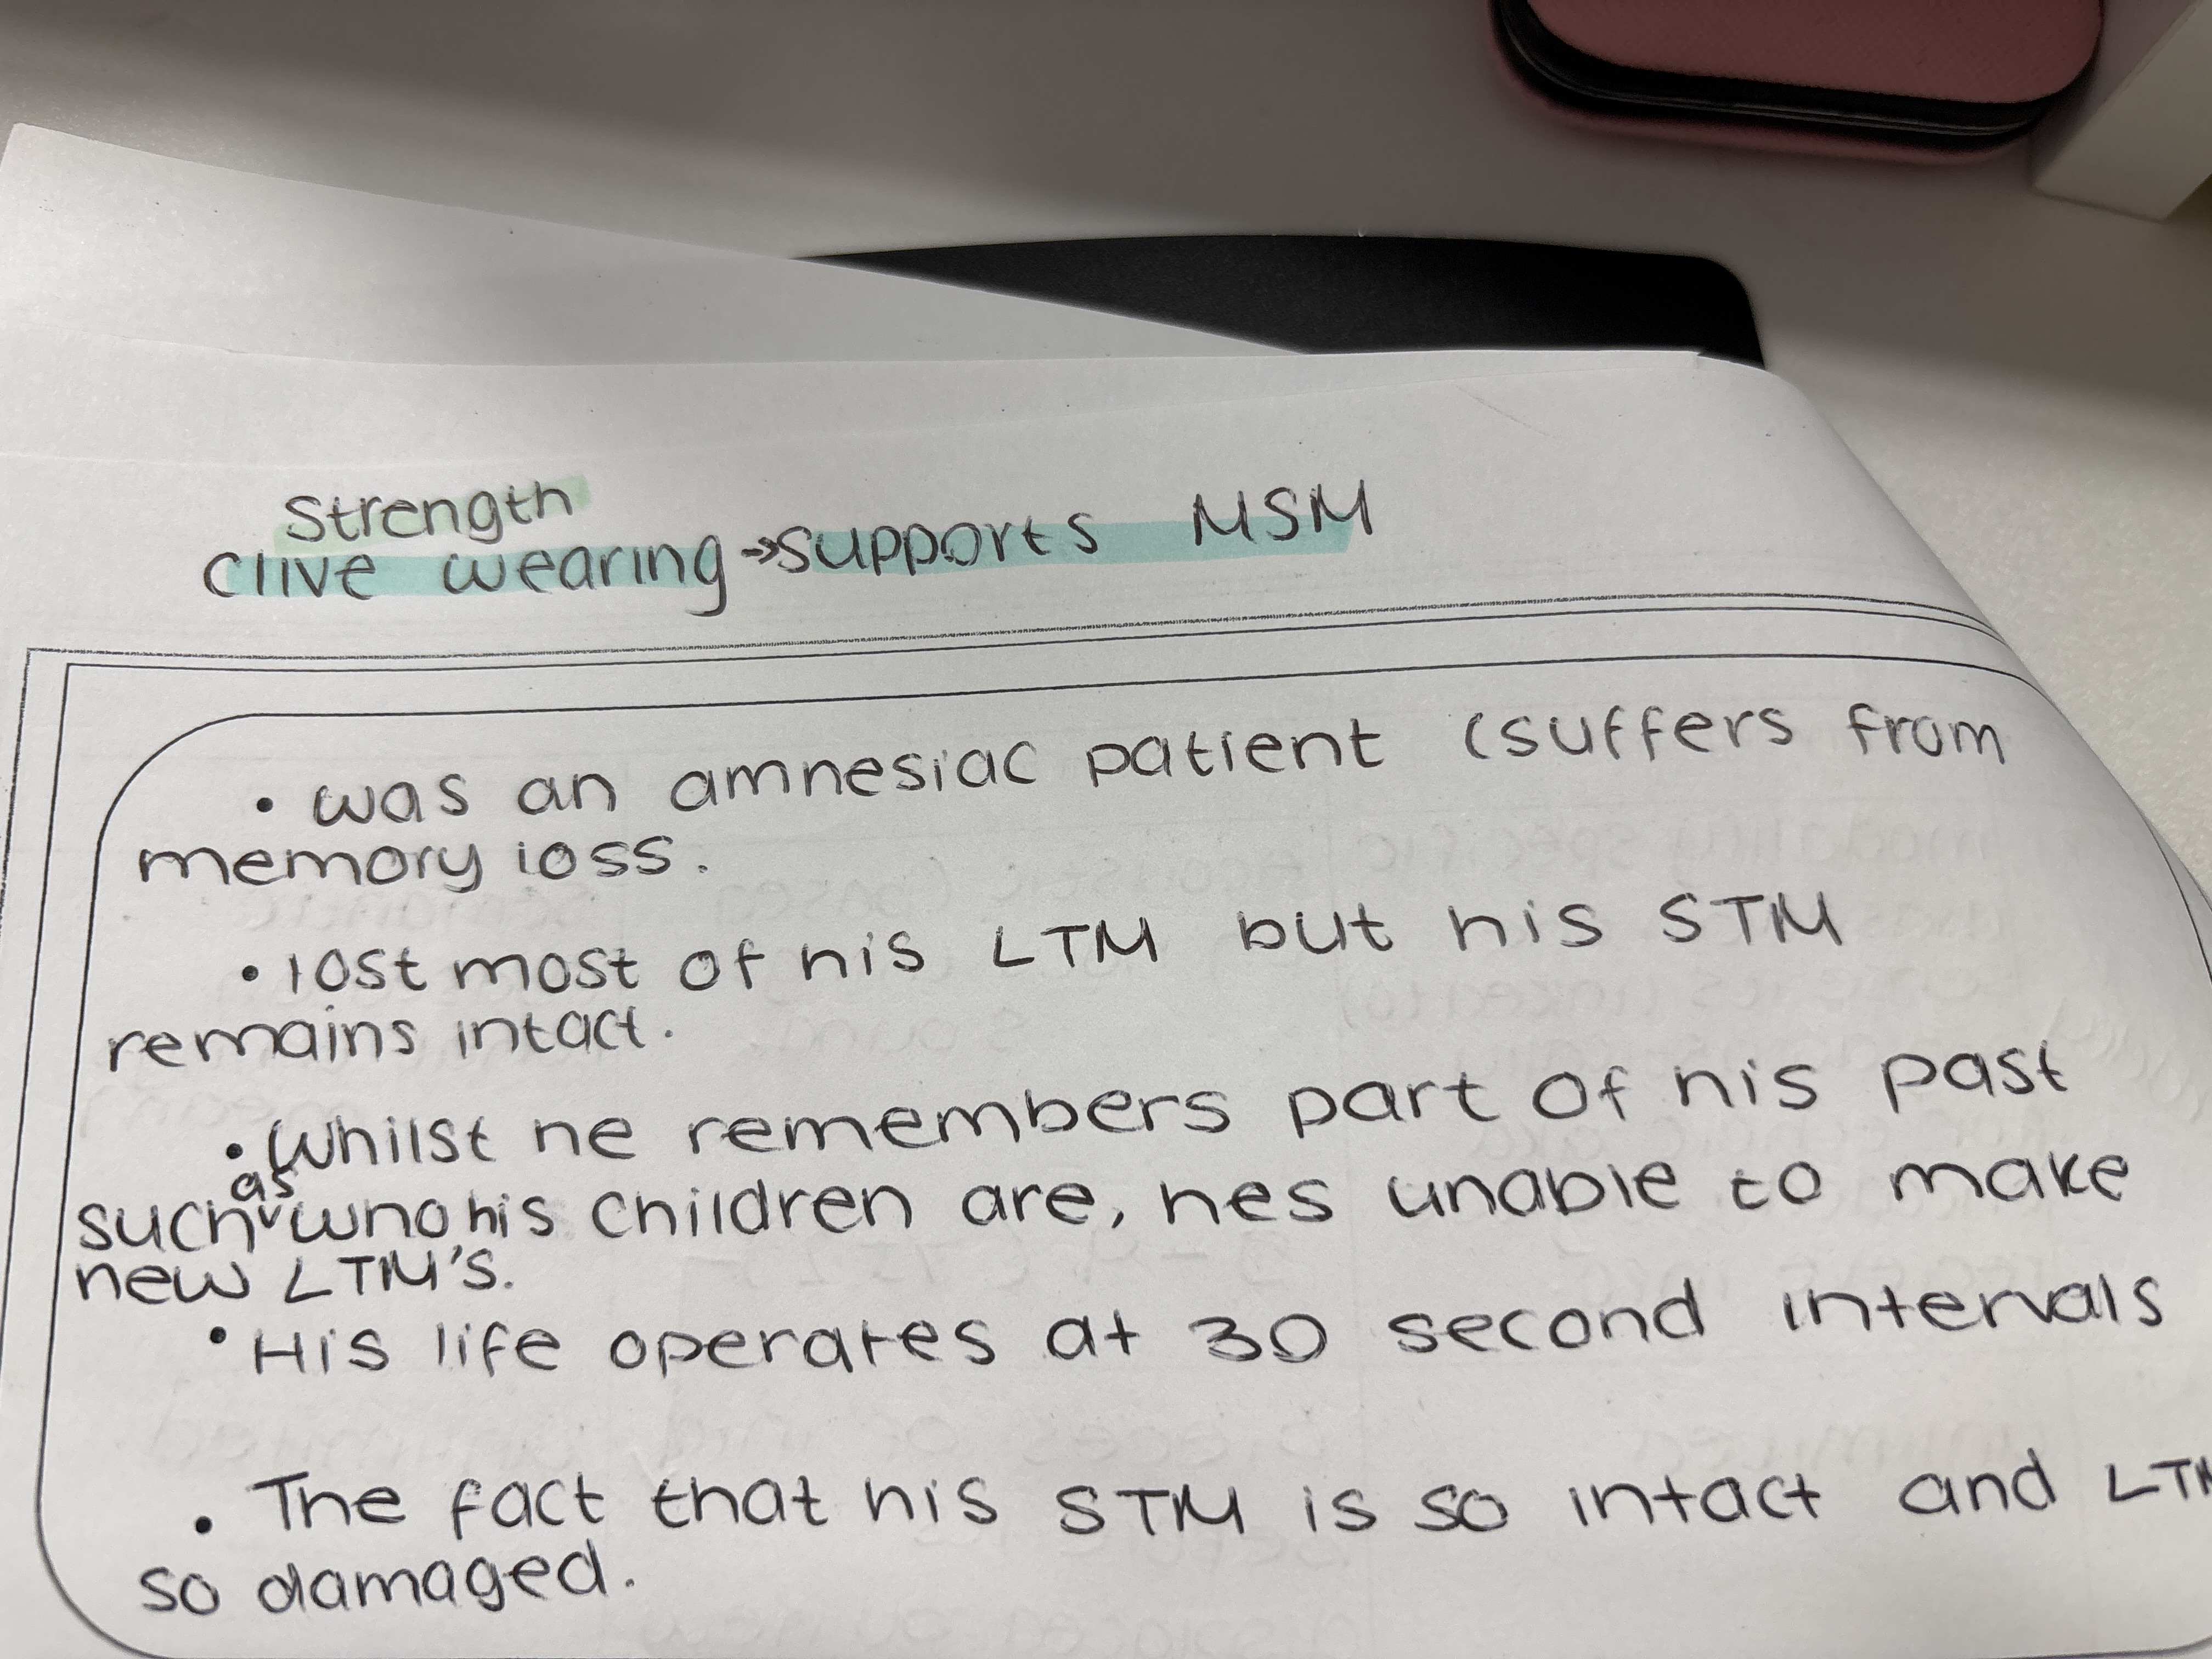 Strength
Clive wearing → supports MSM
• was an amnesiac patient (suffers from
memory loss.
• lost most of his LTM but his STM
remains intact.
• Whilst he remembers part of his past
as
such ˅ who his children are, hes unable to make
new LTM's.
• His life operates at 30 second intervals
• The fact that his STM is so intact and LTM
so damaged.